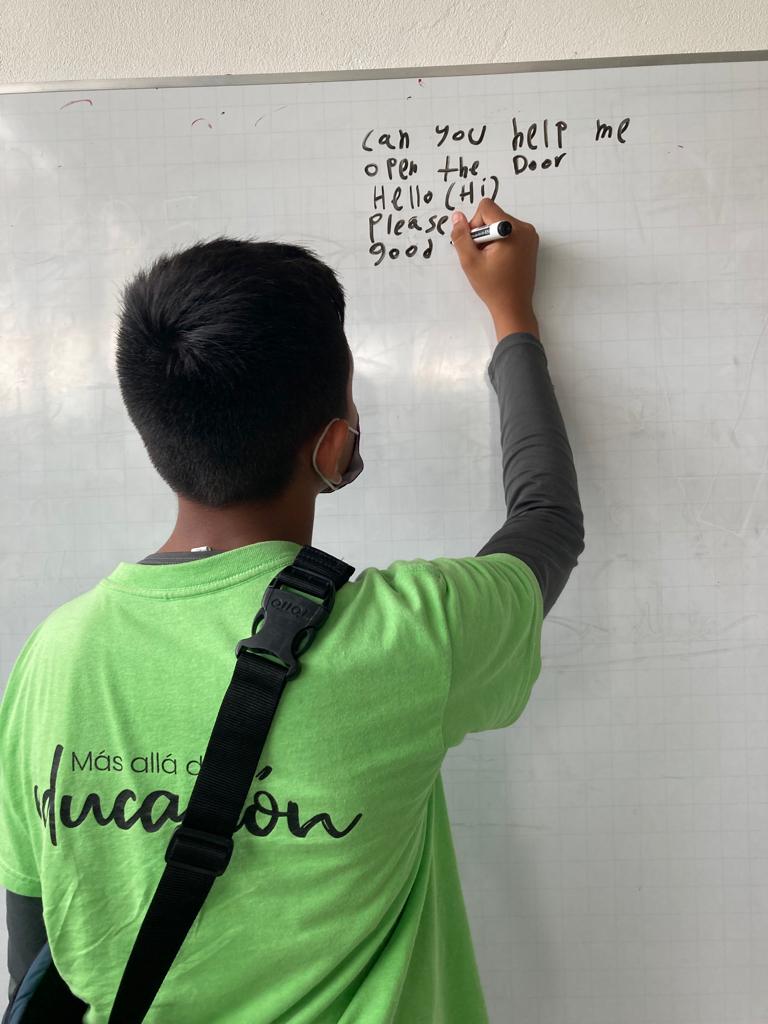 can you help me
open the Door
Hello (Hi)
Please
good
Más allá d
educación